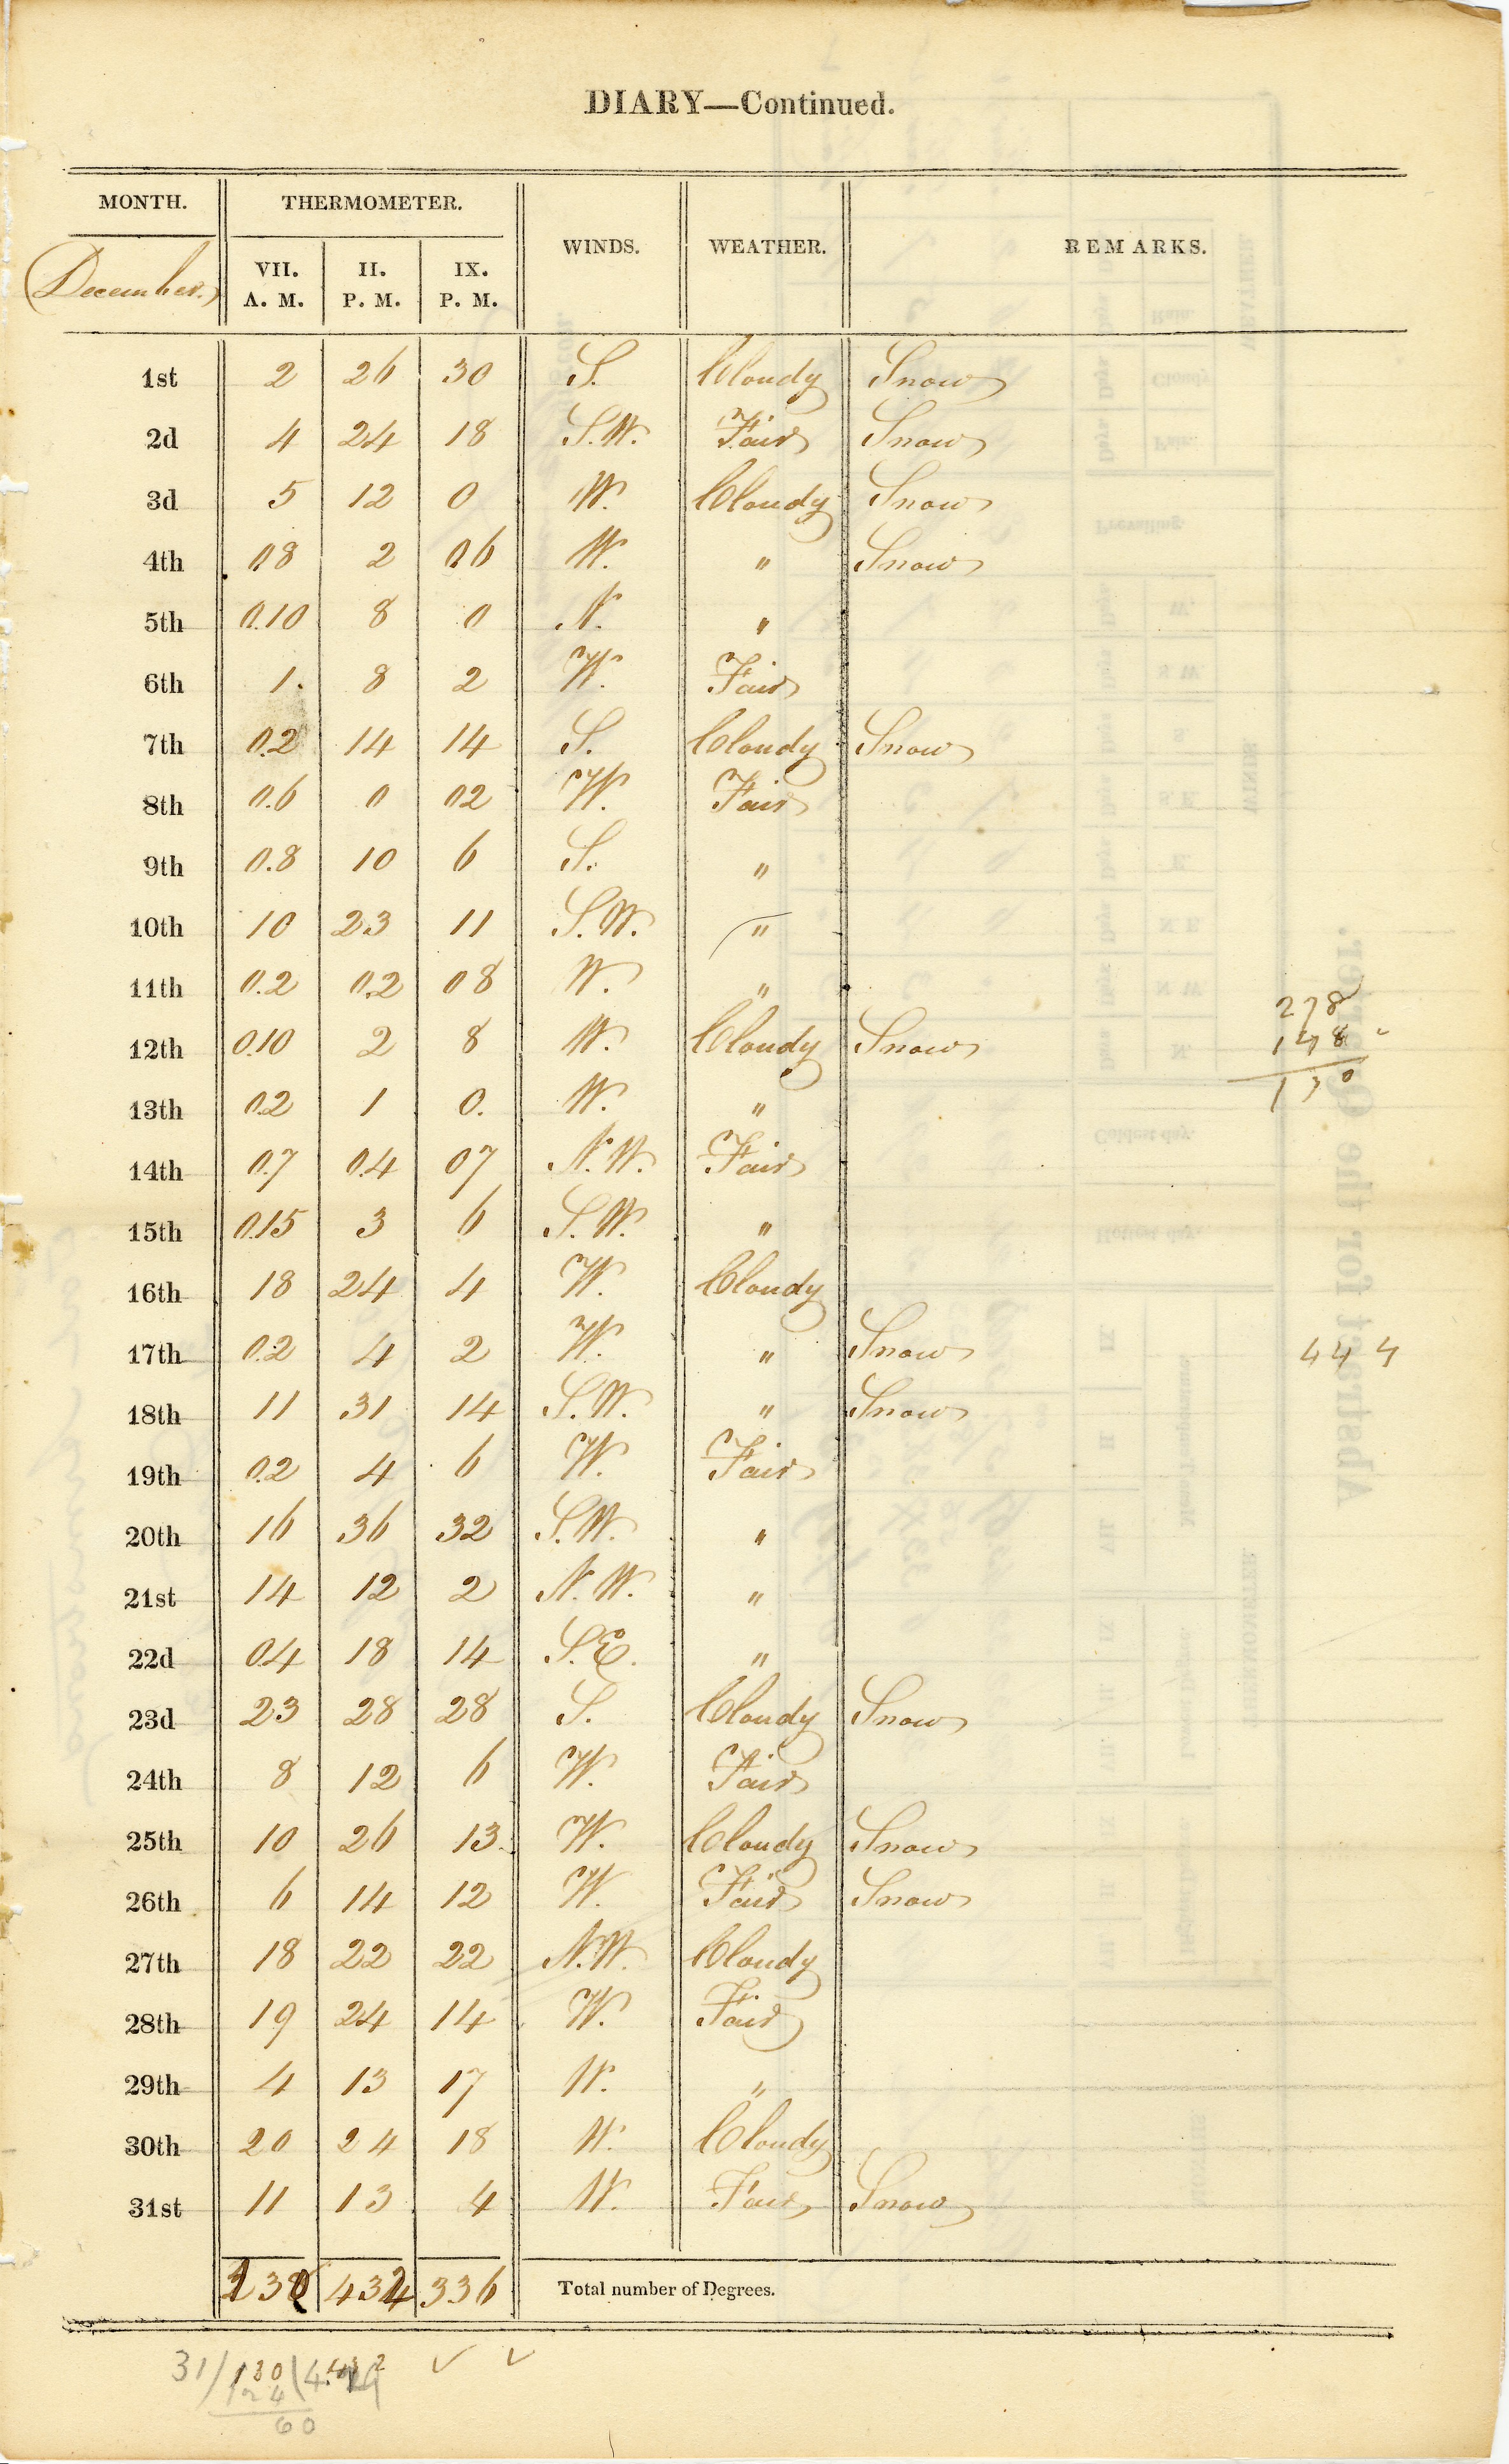 DIARY—Continued.
MONTH. THERMOMETER. WINDS. WEATHER. REMARKS.
December. VII. A. M. II. P. M. IX. P. M.
1st 2 26 30 S. Cloudy Snow
2d 4 24 18 S.W. Fair Snow
3d 5 12 0 W. Cloudy Snow
4th 0.8 2 0.6 W. " Snow
5th 0.10 8 0 N. "
6th 1. 8 2 W. Fair
7th 0.2 14 14 S. Cloudy Snow
8th 0.6 0 02 W. Fair
9th 0.8 10 6 S. "
10th 10 23 11 S.W. "
11th 0.2 0.2 08 W. "
12th 0.10 2 8 W. Cloudy Snow
13th 0.2 1 0. W. "
14th 0.7 0.4 07 N.W. Fair
15th 0.15 3 6 S.W. "
16th 18 24 4 W. Cloudy
17th 0.2 4 2 W. " Snow
18th 11 31 14 S.W. " Snow
19th 0.2 4 6 W. Fair
20th 16 36 32 S.W. "
21st 14 12 2 N.W. "
22d 04 18 14 S.E. "
23d 23 28 28 S. Cloudy Snow
24th 8 12 6 W. Fair
25th 10 26 13 W. Cloudy Snow
26th 6 14 12 W. Fair Snow
27th 18 22 22 N.W. Cloudy
28th 19 24 14 W. Fair
29th 4 13 17 W. "
30th 20 24 18 W. Cloudy
31st 11 13 4 W. Fair Snow
336 Total number of Degrees.
278
148
130
444
31/130
124
60